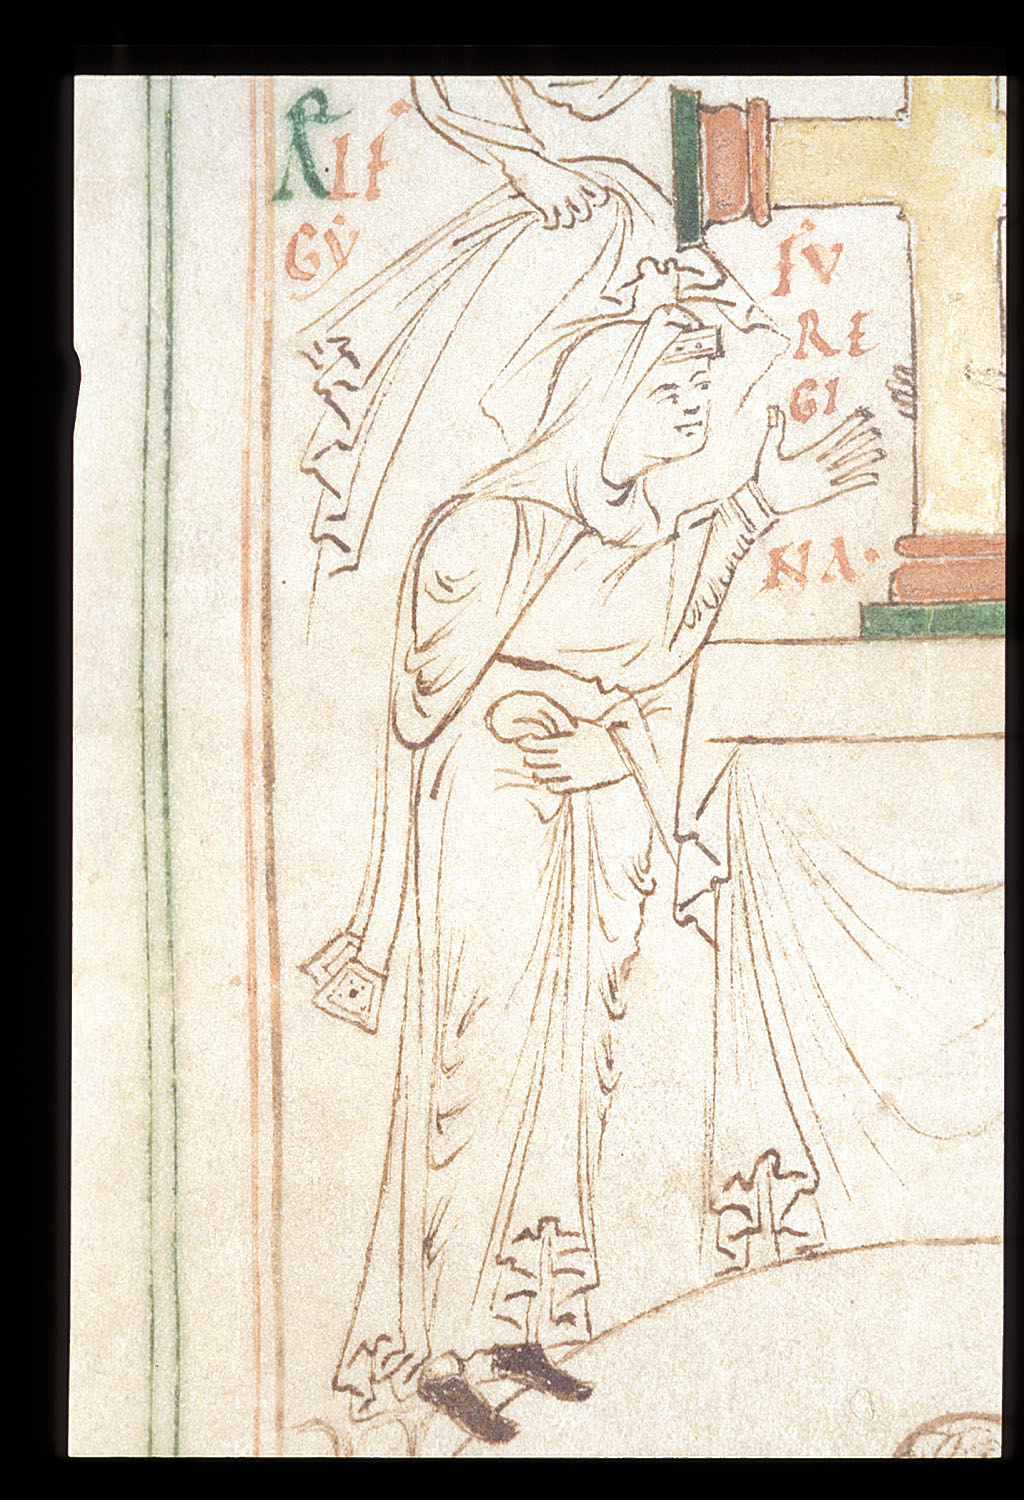 ÆLF
GẎ
FV
RE
GI
NA·